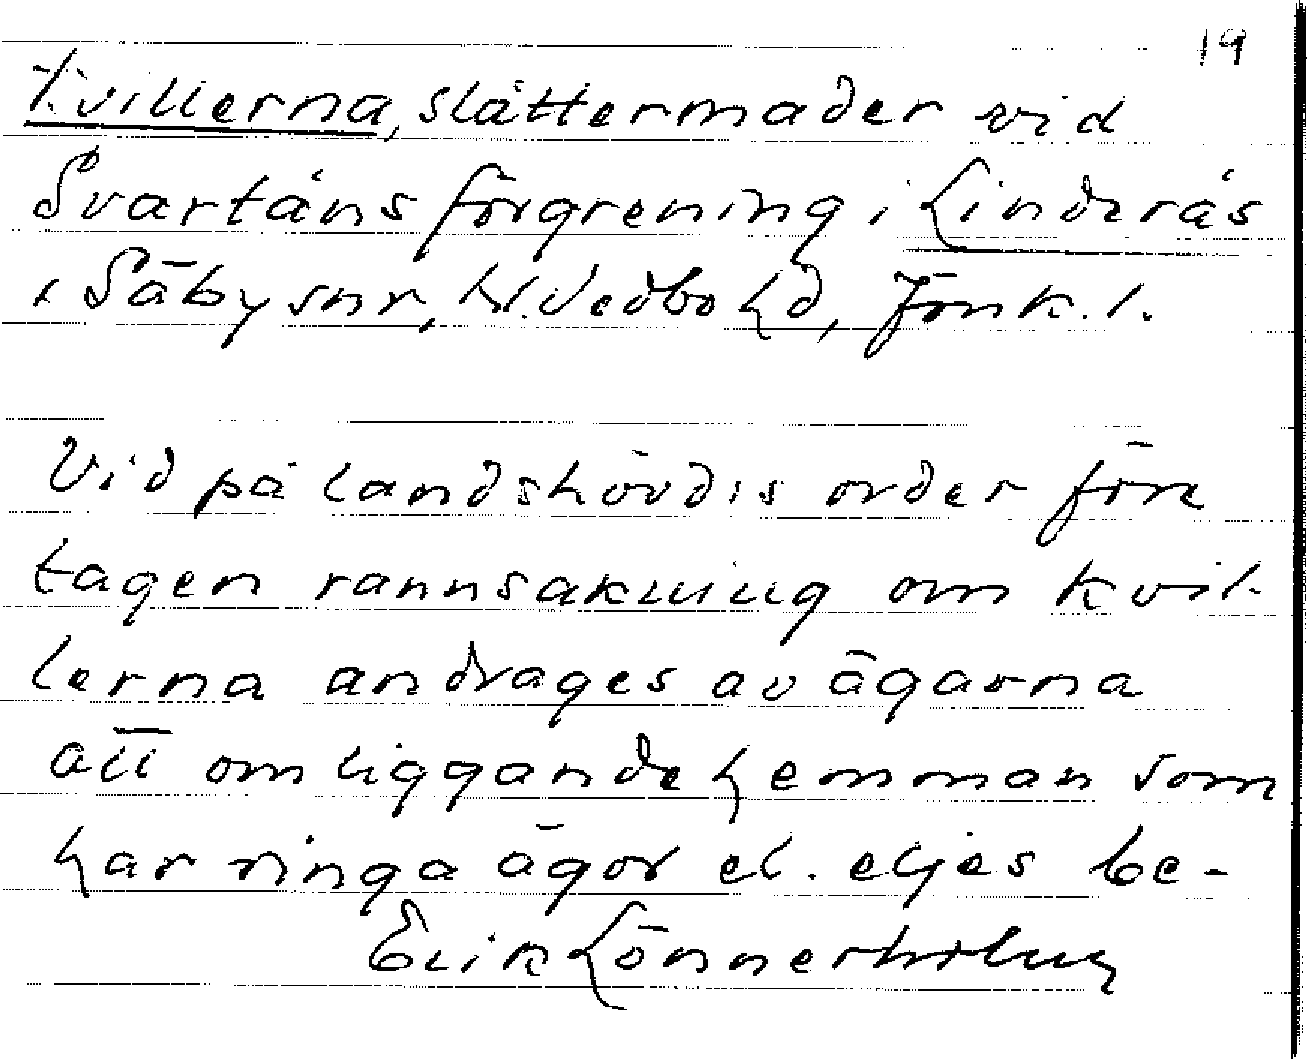 19
Kvillerna, slåttermader vid
Svartåns förgrening i Linderås
i Säby snr, N. Vedbo hd, Jönk. l.
Vid på landshövdis order före
tagen rannsakning om kvil-
lerna andrages av ägarna
att omliggande hemman som
har ringa ägor el. eljes be-
Erik Lönnerholm